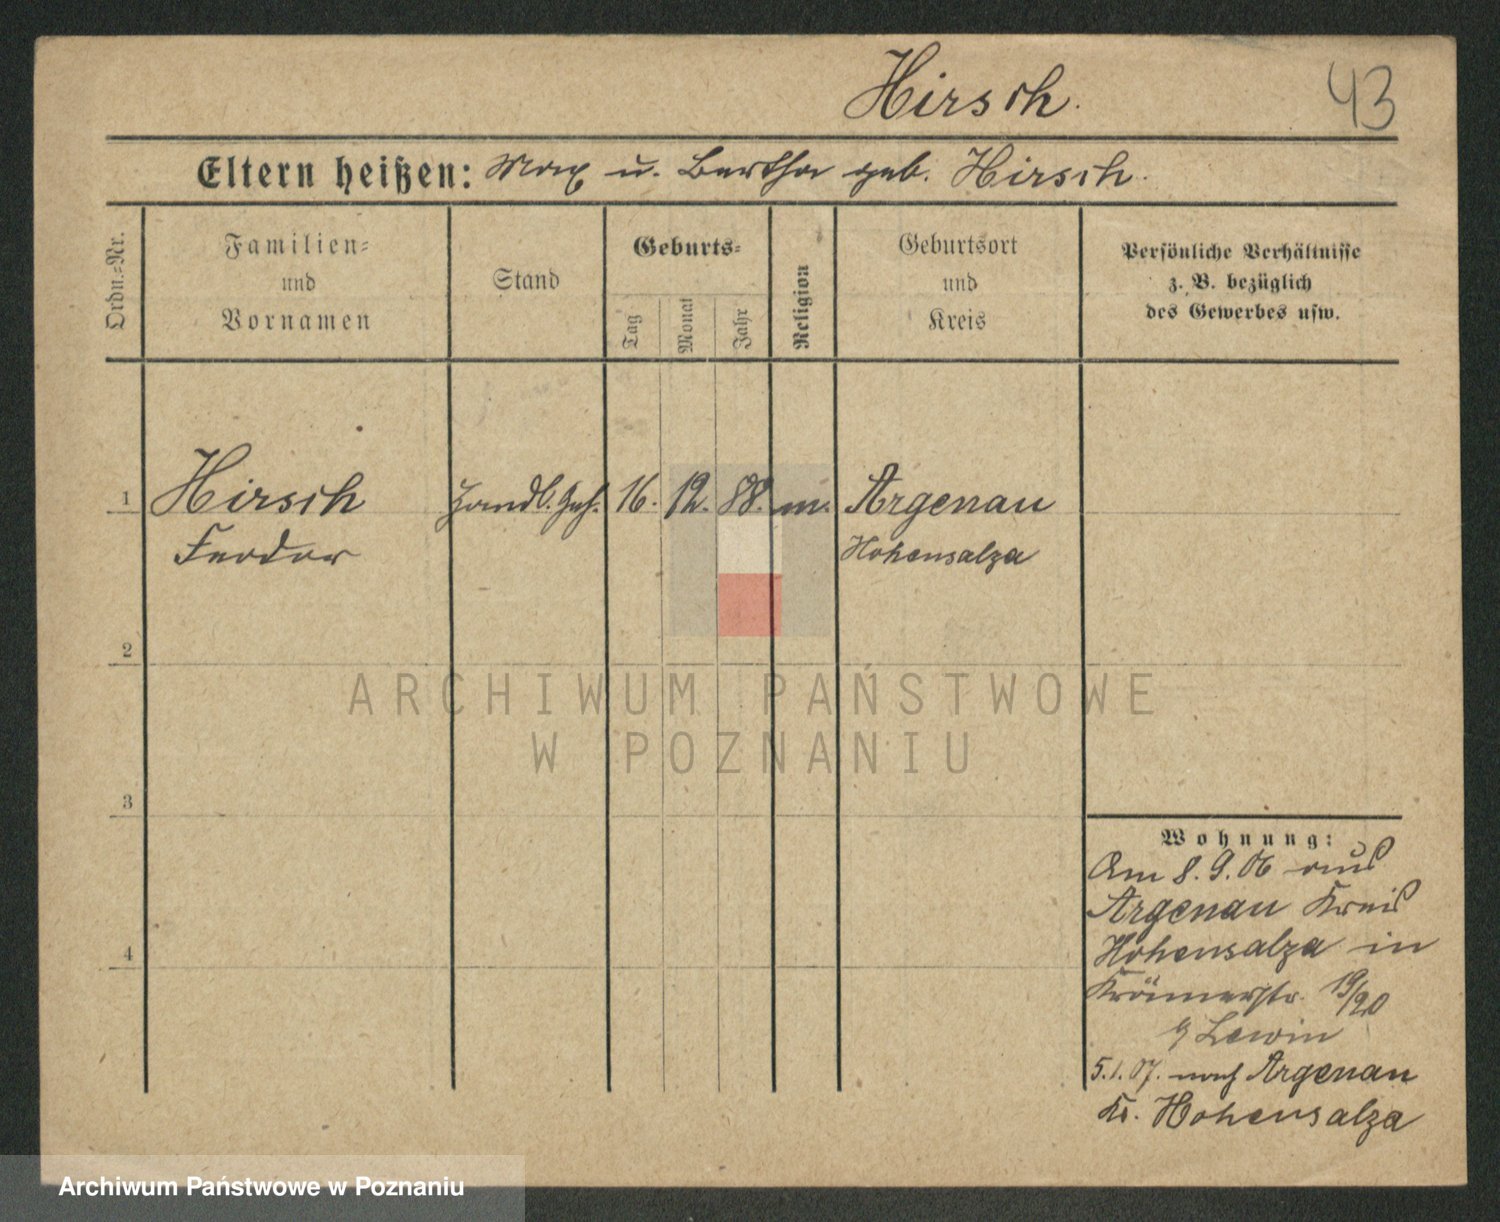 Hirsch.
43
Eltern heißen: Max u. Bertha geb. Hirsch.
Ordn.=Nr.
Familien=
und
Vornamen
Stand
Geburts=
Tag
Monat
Jahr
Religion
Geburtsort
und
Kreis
Persönliche Verhältnisse
z. B. bezüglich
des Gewerbes usw.
1 Hirsch Handl. Geh. 16. 12. 88. m. Argenau
Feodor Hohensalza
2
3
4
Wohnung:
Am 8.9.06 aus
Argenau Kreis
Hohensalza in
Krämerstr. 19/20
b/ Lewin
5.1.07. nach Argenau
Kr. Hohensalza
ARCHIWUM PAŃSTWOWE
W POZNANIU
Archiwum Państwowe w Poznaniu